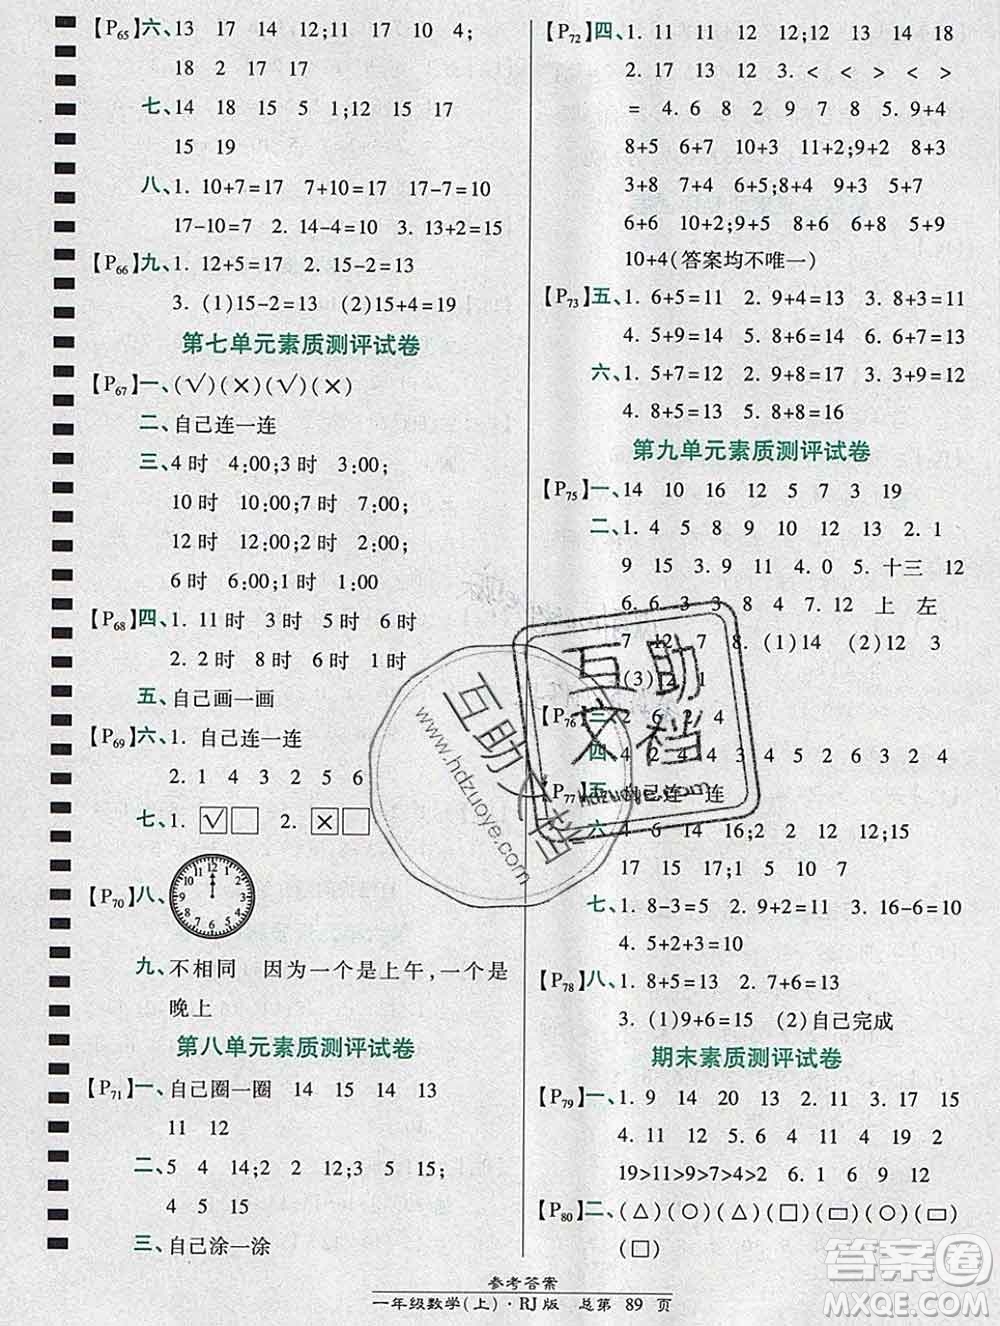 【P65】六、13 17 14 12;11 17 10 4;
18 2 17 17
七、14 18 15 5 1;12 15 17
15 19
八、1. 10+7=17 7+10=17 17-7=10
17-10=7 2. 14-4=10 3. 13+2=15
【P66】九、1. 12+5=17 2. 15-2=13
3. (1)15-2=13 (2)15+4=19
第七单元素质测评试卷
【P67】一、(√)(×)(√)(×)
二、自己连一连
三、4时 4:00;3时 3:00;
10时 10:00;7时 7:00;
12时 12:00;2时 2:00;
6时 6:00;1时 1:00
【P68】四、1. 11时 3时 6时
2. 2时 8时 6时 1时
五、自己画一画
【P69】六、1. 自己连一连
2. 1 4 3 2 5 6
七、1. √ 2. ×
【P70】八、
12 1 2 3 4 5 6 7 8 9 10 11
九、不相同 因为一个是上午,一个是
晚上
第八单元素质测评试卷
【P71】一、自己圈一圈 14 15 14 13
11 12
二、5 4 14;2 2 12;3 5 15;
4 5 15
三、自己涂一涂
【P72】四、1. 11 11 12 13 14 18
2. 17 13 12 3. < < < >
= 4. 6 8 2 9 7 8 5. 9+4
8+5 6+7 10+3 11+2;9+2
8+3 7+4 6+5 10+1;9+3
6+6 10+2;9+5 8+6 5+9
10+4(答案均不唯一)
【P73】五、1. 6+5=11 2. 9+4=13 3. 8+3=11
4. 5+9=14 5. 6+8=14 6. 9+4=13
六、1. 5+7=12 2. 8+9=17 3. 3+9=12
4. 8+5=13 5. 8+8=16
第九单元素质测评试卷
【P75】一、14 10 16 12 5 7 3 19
二、1. 4 5 8 9 10 12 13 2. 1
9 15 3. 13 11 4. 0 5. 十三 12
6. 6 3 3 8 7 12 上 左
7 12 7 8. (1)14 (2)12 3
(3)14 1
【P76】三、2 6 2 4
四、4 2 4 4 3 2 6 3 2 4
【P77】五、自己连一连
六、4 6 14 16;2 12;15
17 8 15 5 10 7
七、1. 8-3=5 2. 9+2=11 3. 16-6=10
4. 5+2+3=10
【P78】八、1. 8+5=13 2. 7+6=13
3. (1)9+6=15 (2)自己完成
期末素质测评试卷
【P79】一、1. 9 14 20 13 2. 9 17 15
4. 11 12 14 17 5. 11 19
19>11>9>7>4>2 6. 1 9 12
【P80】二、(△)(○)(△)(□)(▭)(○)(▭)
(□)
参考答案
一年级数学(上)·RJ版 总第 89 页
互助文档
www.hdzuoye.com
互助文档
hdzuoye.com
答案圈
MXQE.COM